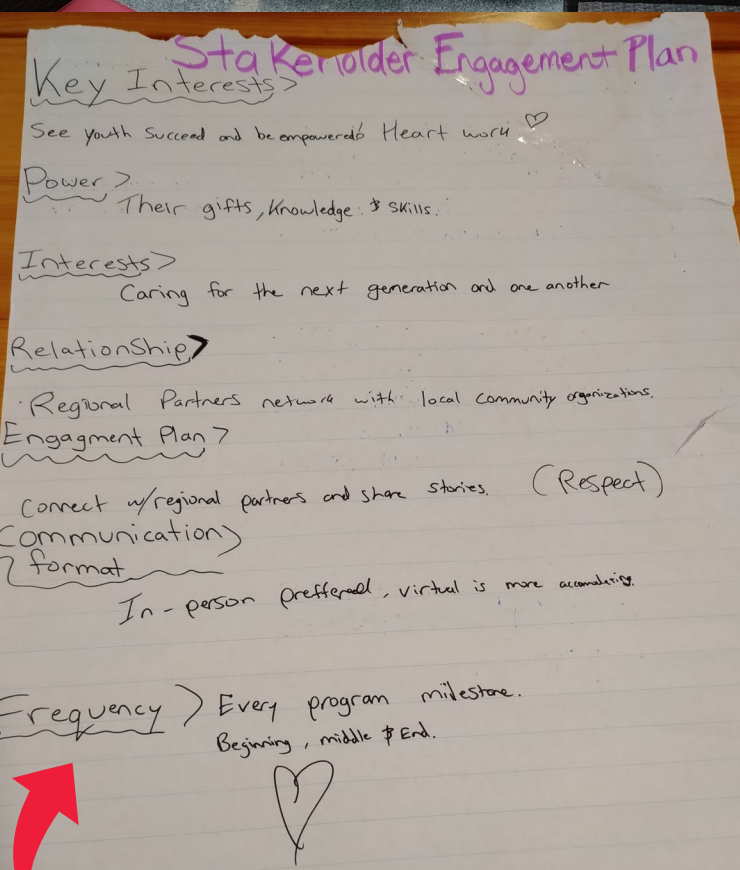 Stakeholder Engagement Plan
Key Interests>
See youth succeed and be empowered Heart work ♡
Power >
Their gifts, Knowledge & Skills.
Interests>
Caring for the next generation and one another
Relationship>
· Regional Partners network with local community organizations.
Engagment Plan >
Connect w/regional partners and share stories. (Respect)
Communication>
format
In-person preffered, virtual is more accomodating.
Frequency > Every program milestone.
Beginning, middle & End.